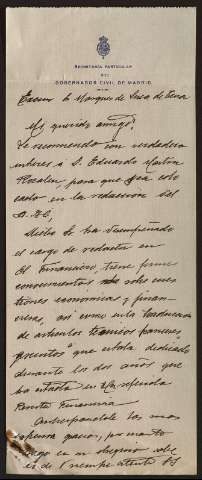 SECRETARÍA PARTICULAR
DEL
GOBERNADOR CIVIL DE MADRID
Excmo Sr Marques de Luca de Tena
Mi querido amigo:
Le recomiendo con verdadero
interes a D. Eduardo Martin
para que sea colo
cado en la redaccion del
A.B.C,
Dicho Sr ha desempeñado
el cargo de redactor en
El Financiero, tiene firmes
conocimientos sobre cues
tiones economicas y finan
cieras, asi como en la traduccion
de articulos tecnicos franceses,
puesto a que estaba dedicado
durante los dos años que
ha estado en la referida
Revista Financiera
Anticipandole las mas
expresivas gracias, por cuanto
haga en su obsequio sabe
es de V siempre atento SS